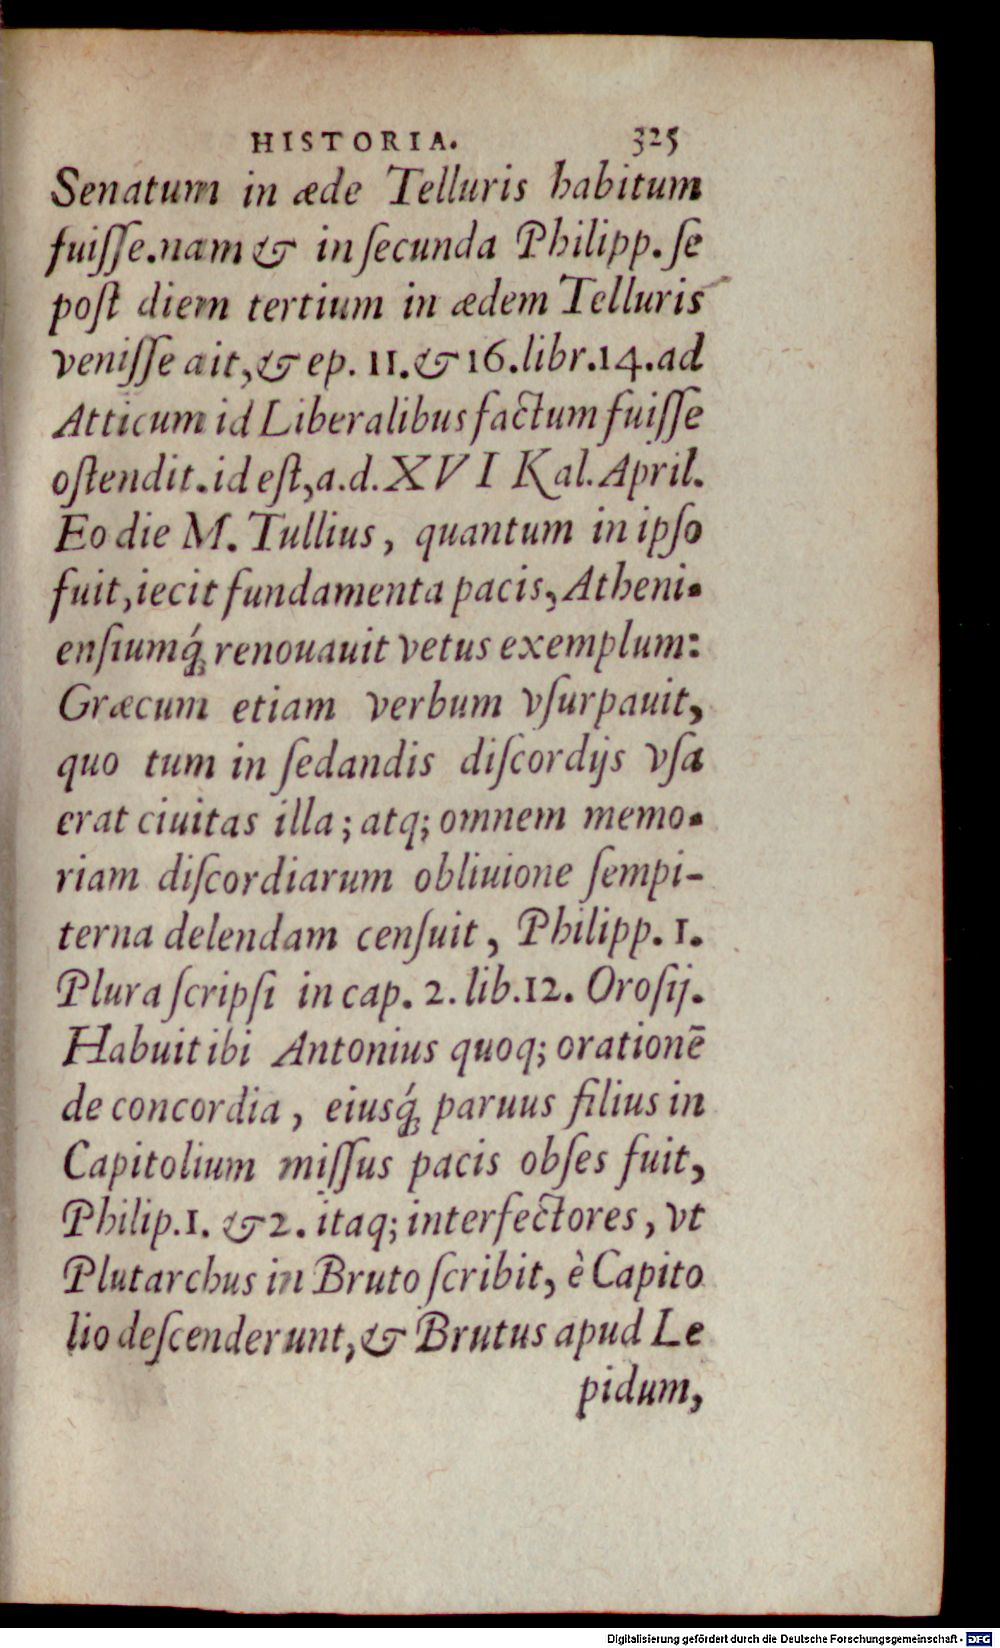 HISTORIA. 325
Senatum in æde Telluris habitum
fuiſſe.nam & in ſecunda Philipp. ſe
poſt diem tertium in ædem Telluris
veniſſe ait, & ep. 11. & 16. libr. 14. ad
Atticum id Liberalibus factum fuiſſe
oſtendit. id eſt, a.d. XVI Kal. April.
Eo die M. Tullius, quantum in ipſo
fuit, iecit fundamenta pacis, Atheni-
enſiumq́; renouauit vetus exemplum:
Græcum etiam verbum vſurpauit,
quo tum in ſedandis diſcordijs vſa
erat ciuitas illa; atq; omnem memo-
riam diſcordiarum obliuione ſempi-
terna delendam cenſuit, Philipp. 1.
Plura ſcripſi in cap. 2. lib. 12. Oroſij.
Habuit ibi Antonius quoq; orationē
de concordia, eiusq́; paruus filius in
Capitolium miſſus pacis obſes fuit,
Philip. 1. & 2. itaq; interfectores, vt
Plutarchus in Bruto ſcribit, è Capito
lio deſcenderunt, & Brutus apud Le
pidum,
Digitalisierung gefördert durch die Deutsche Forschungsgemeinschaft - DFG